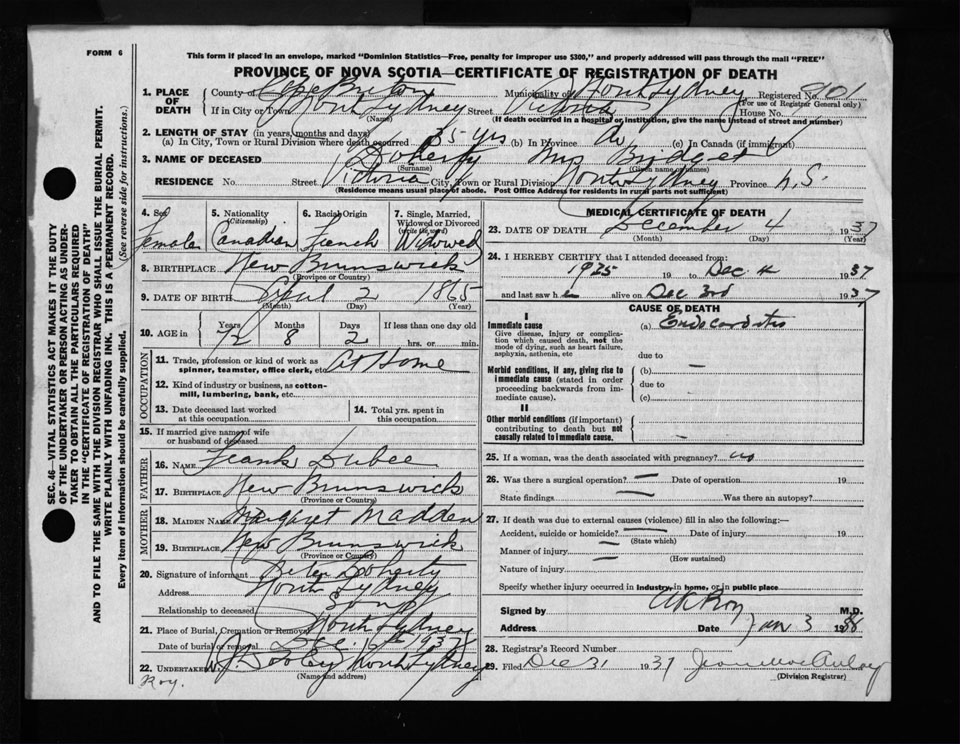 FORM 6
This form if placed in an envelope, marked "Dominion Statistics—Free, penalty for improper use $300," and properly addressed will pass through the mail "FREE"
PROVINCE OF NOVA SCOTIA—CERTIFICATE OF REGISTRATION OF DEATH
1. PLACE OF DEATH
County of Cape Breton Municipality of North Sydney Registered No.
(For use of Registrar General only)
If in City or Town North Sydney Street Victoria House No.
(Name) (If death occurred in a hospital or institution, give the name instead of street and number)
2. LENGTH OF STAY (in years, months and days)
(a) In City, Town or Rural Division where death occurred 35 yrs (b) In Province (c) In Canada (if immigrant)
3. NAME OF DECEASED Doherty Mrs Bridget
(Surname) (Given name or names)
RESIDENCE No. Street Victoria City, Town or Rural Division North Sydney Province N.S.
(Residence means usual place of abode. Post Office Address for residents in rural parts not sufficient)
4. Sex Female
5. Nationality (Citizenship) Canadian
6. Racial Origin French
7. Single, Married, Widowed or Divorced (write the word) Widowed
8. BIRTHPLACE New Brunswick
(Province or Country)
9. DATE OF BIRTH April 2 1865
(Month) (Day) (Year)
10. AGE in Years Months Days If less than one day old
72 8 2 hrs. or min.
OCCUPATION
11. Trade, profession or kind of work as spinner, teamster, office clerk, etc. At Home
12. Kind of industry or business, as cotton-mill, lumbering, bank, etc.
13. Date deceased last worked at this occupation
14. Total yrs. spent in this occupation
15. If married give name of wife or husband of deceased
FATHER
16. NAME Frank Dubee
17. BIRTHPLACE New Brunswick
(Province or Country)
MOTHER
18. MAIDEN NAME Margaret Madden
19. BIRTHPLACE New Brunswick
(Province or Country)
20. Signature of informant Peter Doherty
Address North Sydney
Relationship to deceased Son
21. Place of Burial, Cremation or Removal North Sydney
Date of burial or removal Dec. 1937
22. UNDERTAKER J Dooley North Sydney
(Name and address)
Roy.
MEDICAL CERTIFICATE OF DEATH
23. DATE OF DEATH December 4 1937
(Month) (Day) (Year)
24. I HEREBY CERTIFY that I attended deceased from:
1935 19 to Dec 4 1937
and last saw her alive on Dec 3rd 1937
CAUSE OF DEATH
I
Immediate cause
Give disease, injury or complication which caused death, not the mode of dying, such as heart failure, asphyxia, asthenia, etc
(a) Endocarditis
due to
Morbid conditions, if any, giving rise to immediate cause (stated in order proceeding backwards from immediate cause).
(b) —
due to
(c)
II
Other morbid conditions (if important) contributing to death but not causally related to immediate cause.
—
25. If a woman, was the death associated with pregnancy? no
26. Was there a surgical operation? — Date of operation 19
State findings — Was there an autopsy?
27. If death was due to external causes (violence) fill in also the following:—
Accident, suicide or homicide? — Date of injury 19
(State which)
Manner of injury —
(How sustained)
Nature of injury
Specify whether injury occurred in industry, in home, or in public place
Signed by M.D.
Address Date Jan 3 1938
28. Registrar's Record Number
29. Filed Dec 31 1937 Jean MacAulay
(Division Registrar)
SEC. 46—VITAL STATISTICS ACT MAKES IT THE DUTY
OF THE UNDERTAKER OR PERSON ACTING AS UNDER-
TAKER TO OBTAIN ALL THE PARTICULARS REQUIRED
IN THE "CERTIFICATE OF REGISTRATION OF DEATH"
AND TO FILE THE SAME WITH THE DIVISION REGISTRAR WHO SHALL ISSUE THE BURIAL PERMIT.
WRITE PLAINLY WITH UNFADING INK. THIS IS A PERMANENT RECORD.
Every item of information should be carefully supplied. (See reverse side for instructions.)